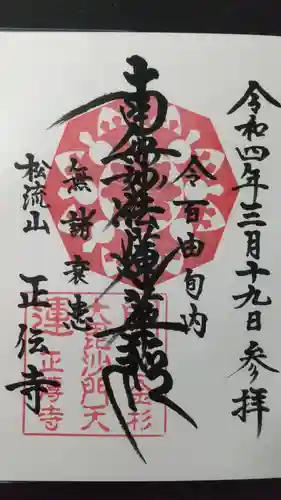 令和四年三月十九日参拝
令百由旬内
南無妙法蓮華経
無諸衰患
松流山
正伝寺
大毘沙門天
正傳寺